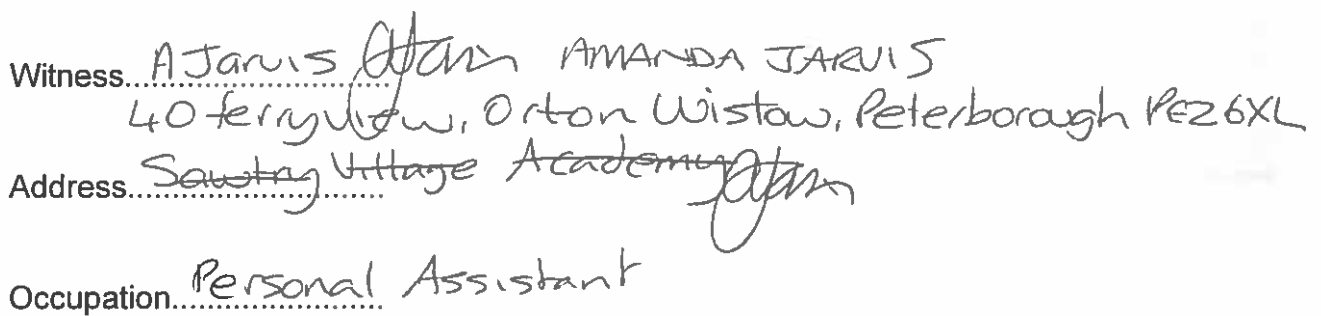 Witness... A Jarvis AMANDA JARVIS
40 ferryview, Orton Wistow, Peterborough PE26XL
Address... Sawtry Village Academy
Occupation... Personal Assistant